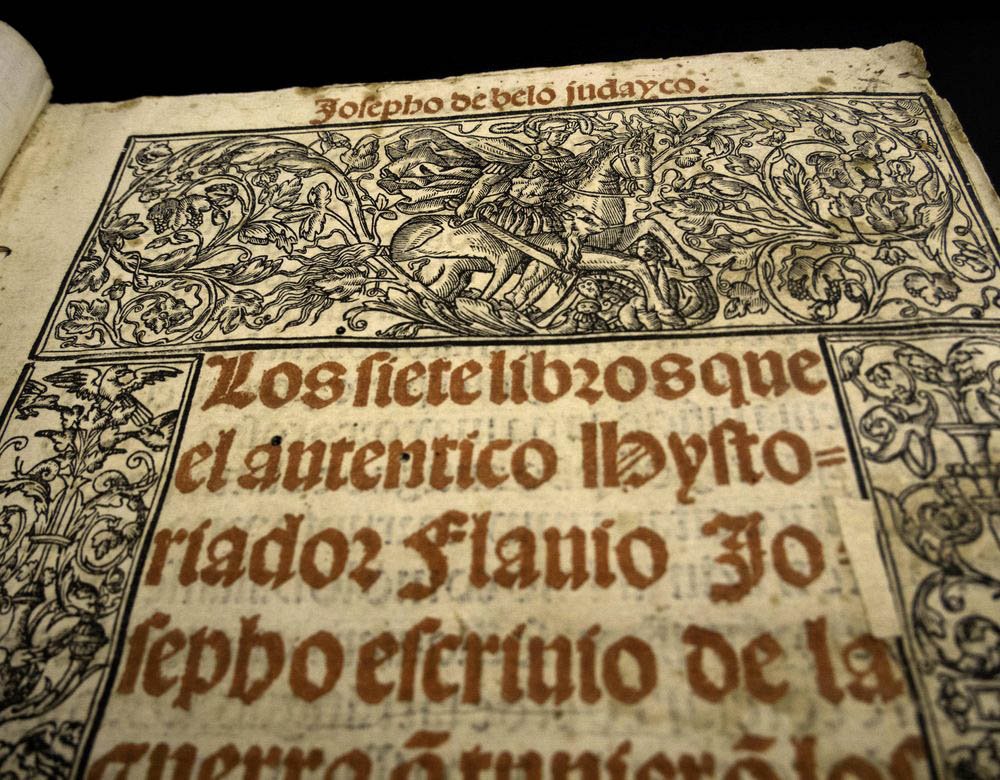 Josepho de belo judayco.
Los siete libros que
el autentico Hysto=
riador Flauio Jo=
sepho escriuio de la
guerra q̄ tuuierō los